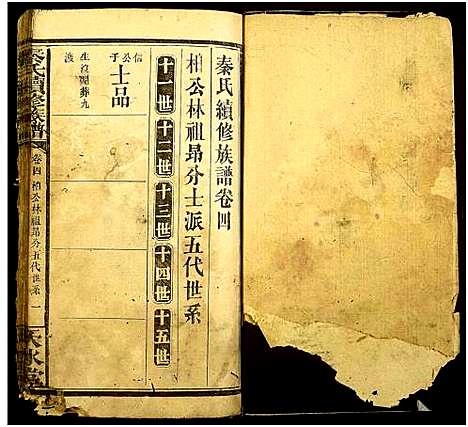 秦氏續修族譜卷四
柏公林祖昂分士派五代世系
十一世 十二世 十三世 十四世 十五世
信公子
士品
生沒葬
九
沒
秦氏續修族譜
卷四 柏公林祖昂分五代世系 一